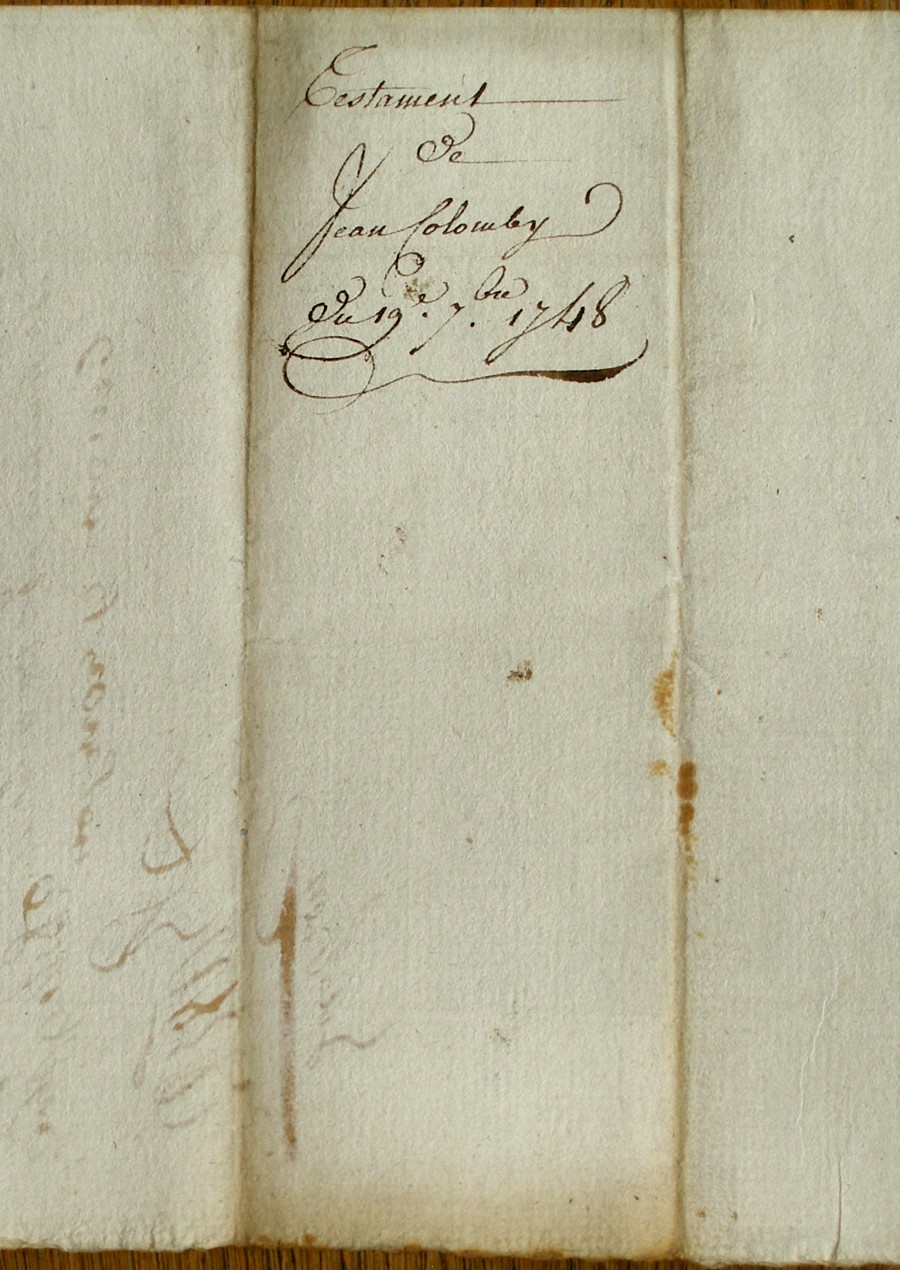 Testament
de
Jean Colomby
Du 19e. 7.bre 1748